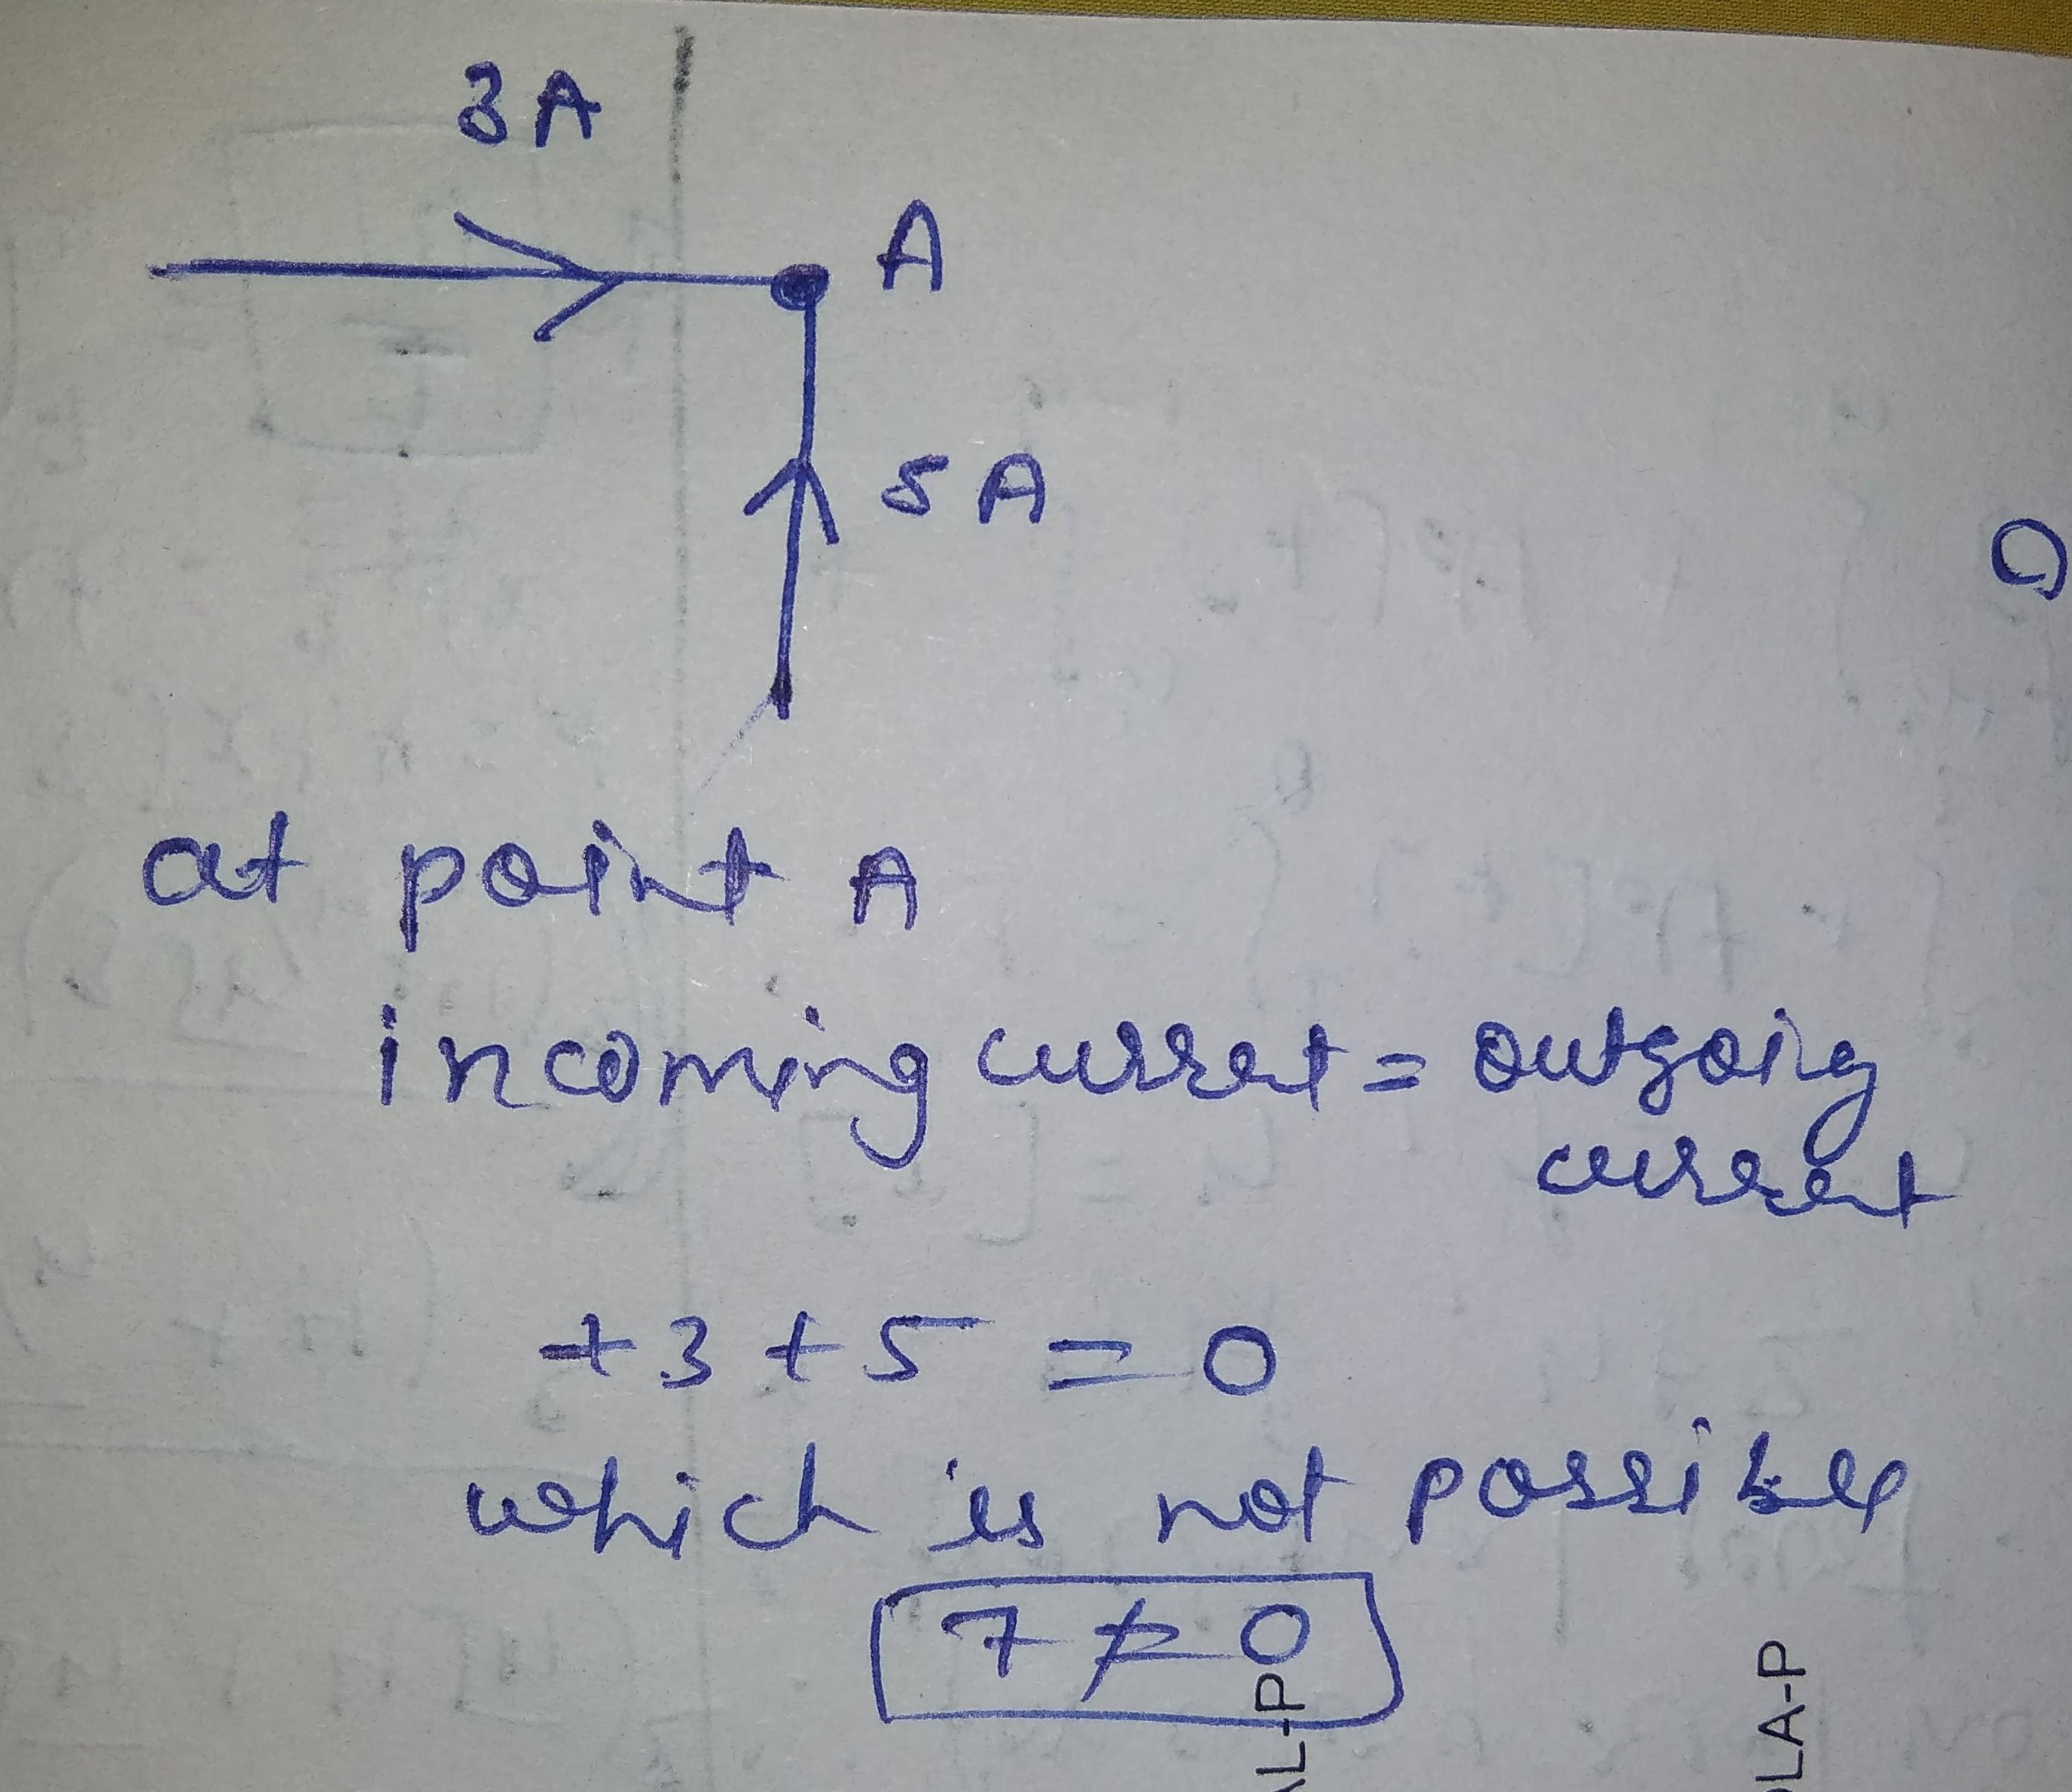 3A
A
5A
at point A
incoming current = outgoing
current
+3+5 = 0
which is not possible
7 ≠ 0
AL-P
OLA-P